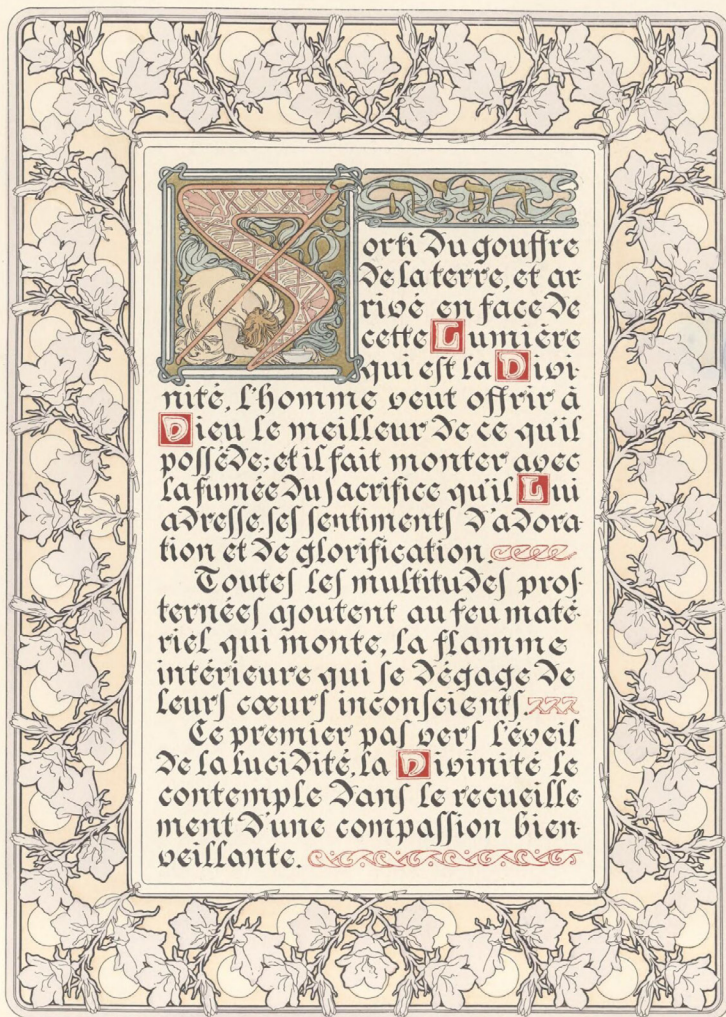 Sorti du gouffre
de la terre, et ar
rivé en face de
cette Lumière
qui est la Divi-
nité, l'homme veut offrir à
Dieu le meilleur de ce qu'il
possède: et il fait monter avec
la fumée du sacrifice qu'il Lui
adresse, ses sentiments d'adora-
tion et de glorification.
Toutes les multitudes pros-
ternées ajoutent au feu maté-
riel qui monte, la flamme
intérieure qui se dégage de
leurs cœurs inconscients.
Ce premier pas vers l'éveil
de la lucidité, la Divinité le
contemple dans le recueille-
ment d'une compassion bien-
veillante.